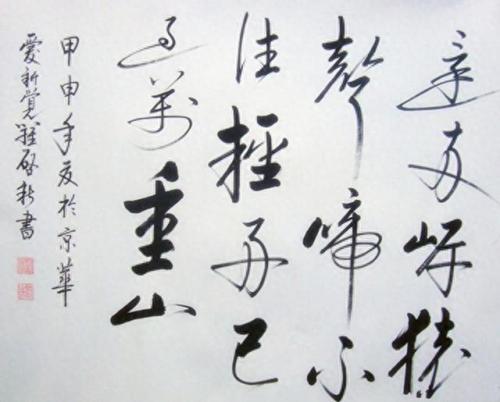 還兩岸猿
聲啼不
住輕舟已
過萬重山
甲申年夏於京華
愛新覺羅啓書